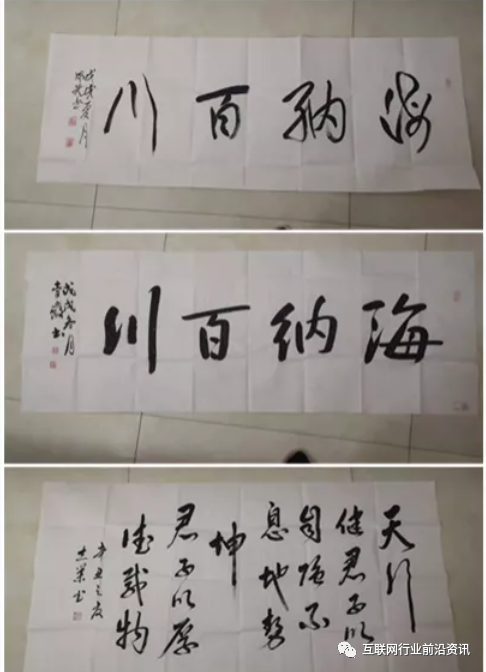 海纳百川
戊戌夏月
海纳百川
戊戌冬月
天行
健君子以
自强不
息地势
坤
君子以厚
德载物
辛丑之夏
互联网行业前沿资讯